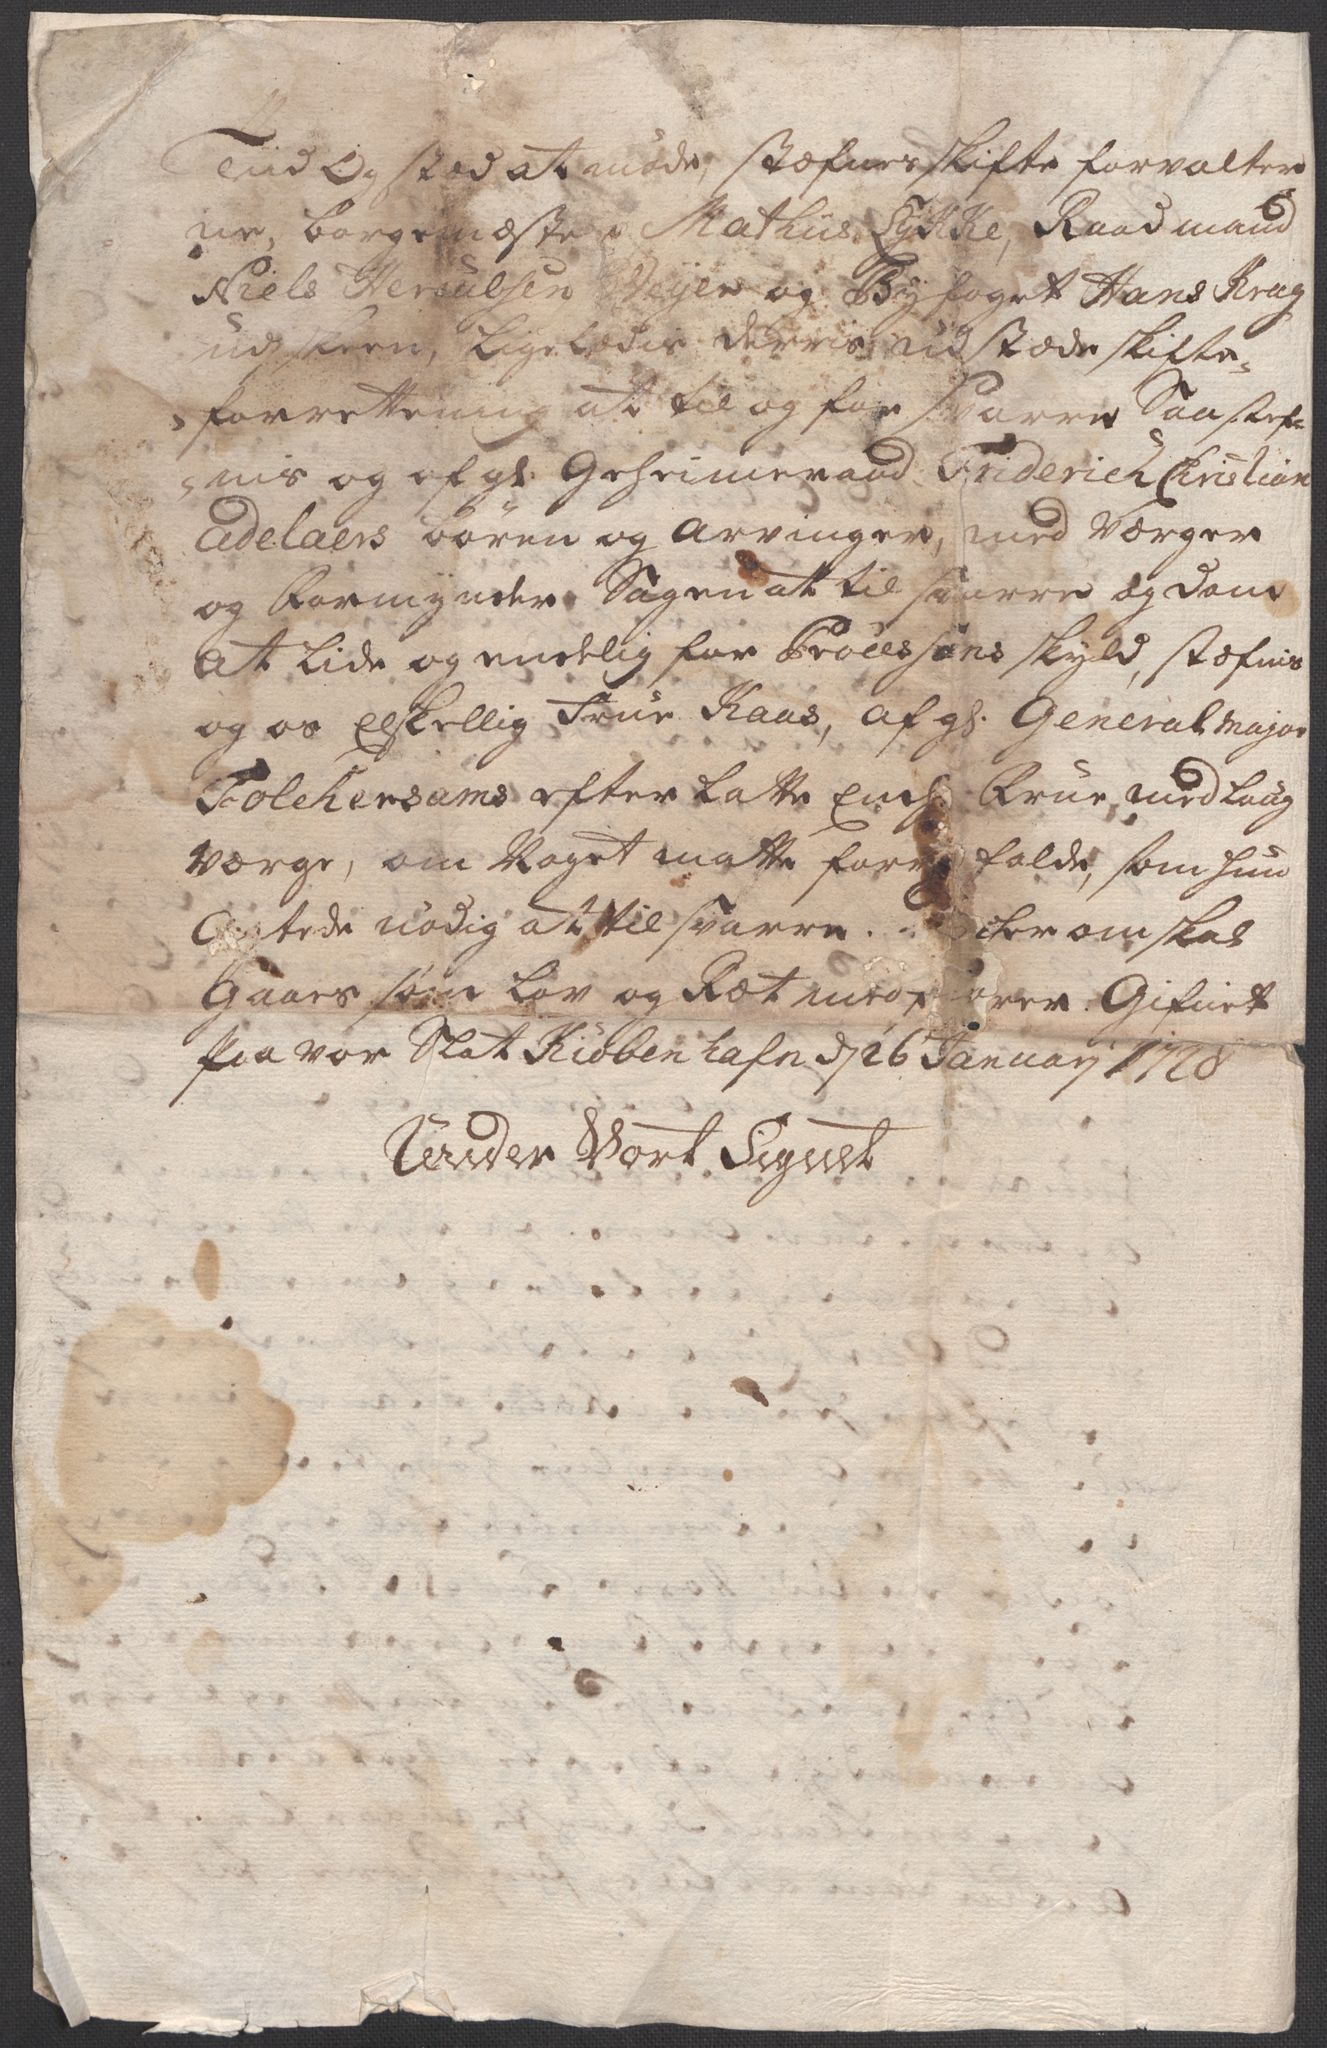 Tiid Og stæd at møde, stæfnes skifte forvalter
ne, borgemæster Mathias Lykke, Raadmand
Niels Herculsen Weyer og Byfoget Hans Krag
udj Skeen, ligeledis derris udstæde skifte-
forrettening at til og for svarre Saa stef-
nis og afgl: Geheimeraad Friderich Christian
Adelaers børen og arvinger, med værger
og Formynder Sagen at til svarre og dom
at lide og endelig for Processens skyld, stæfnis
og os Elskellig Frue Kaas, afgl: General Major
Folchersams efterlatte Enche Frue med laug
værge, om Noget matte forre falde, som hun
Agtede nødig at til svarre. Her om skal
Gaaes som lov og Ræt medfører. Gifuet
paa vor Slot Kiøbenhafn d: 26 January 1728
Under Vort Signet